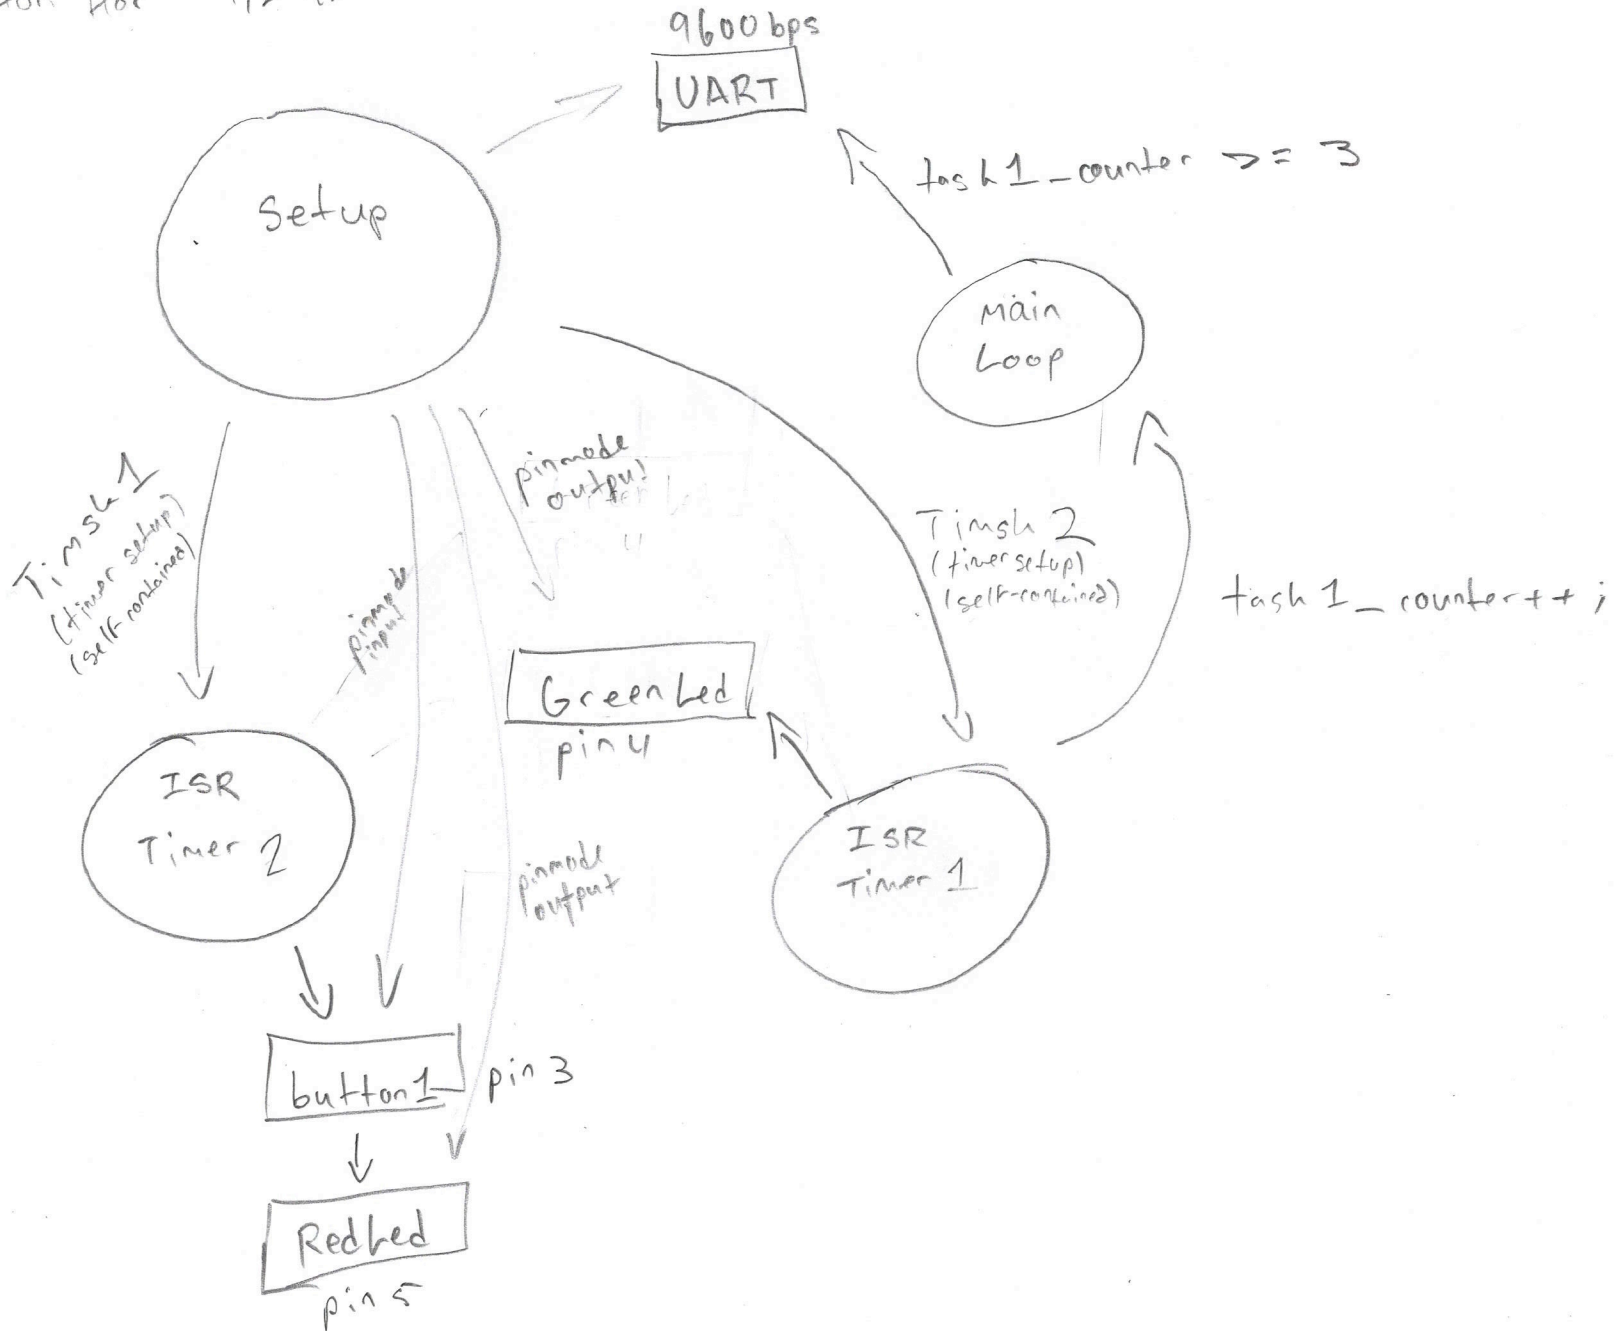 9600 bps
UART
Setup
task1_counter >= 3
Main
Loop
pinmode
output
Timsk1
(timer setup)
(self-contained)
pinmode
input
Timsk 2
(timer setup)
(self-contained)
task1_counter++;
Green Led
pin 4
ISR
Timer 2
ISR
Timer 1
pinmode
output
button1
pin 3
Red Led
pin 5